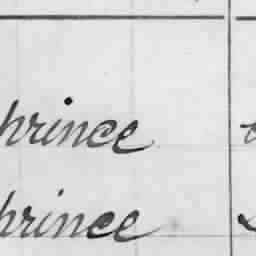 prince
prince